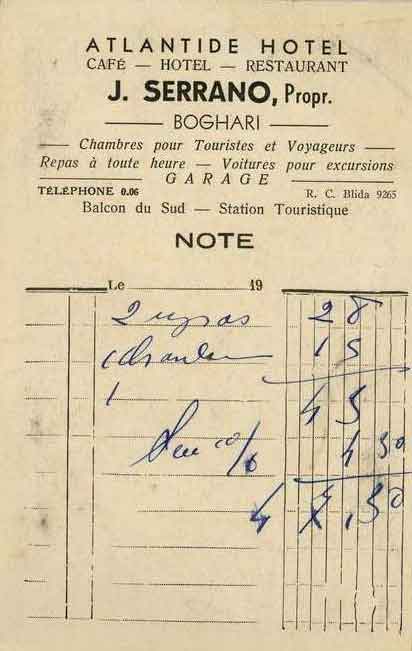 ATLANTIDE HOTEL
CAFÉ — HOTEL — RESTAURANT
J. SERRANO, Propr.
BOGHARI
Chambres pour Touristes et Voyageurs
Repas à toute heure — Voitures pour excursions
GARAGE
TÉLÉPHONE 0.06 R. C. Blida 9265
Balcon du Sud — Station Touristique
NOTE
Le 19
2 28
1 15
1
%